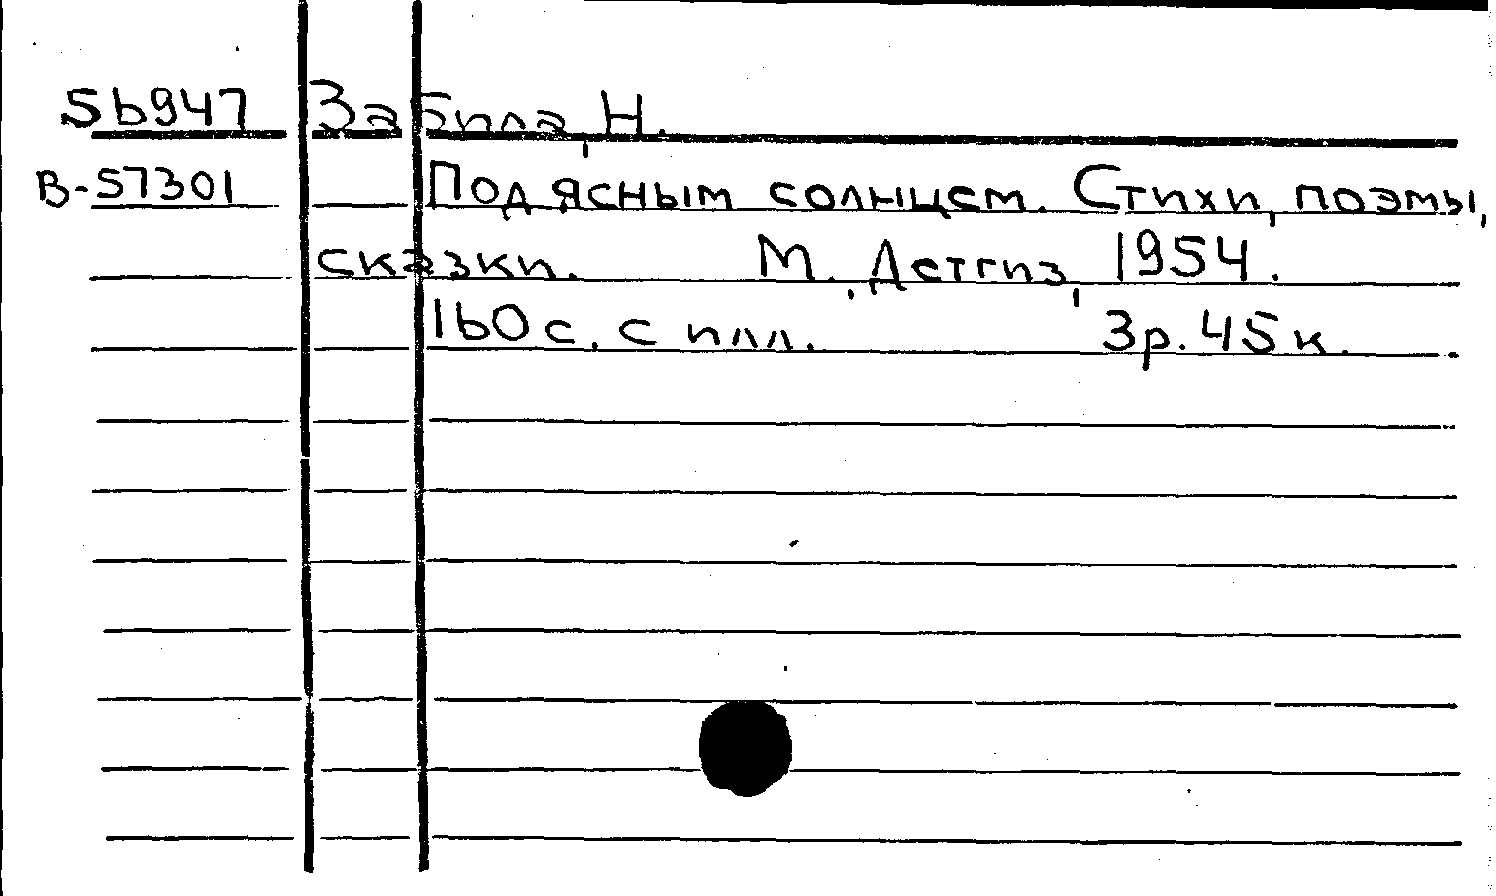 56947 Забила, Н.
В-57301 Под ясным солнцем. Стихи, поэмы,
сказки. М., Детгиз, 1954.
160 с. с илл. 3р. 45 к.